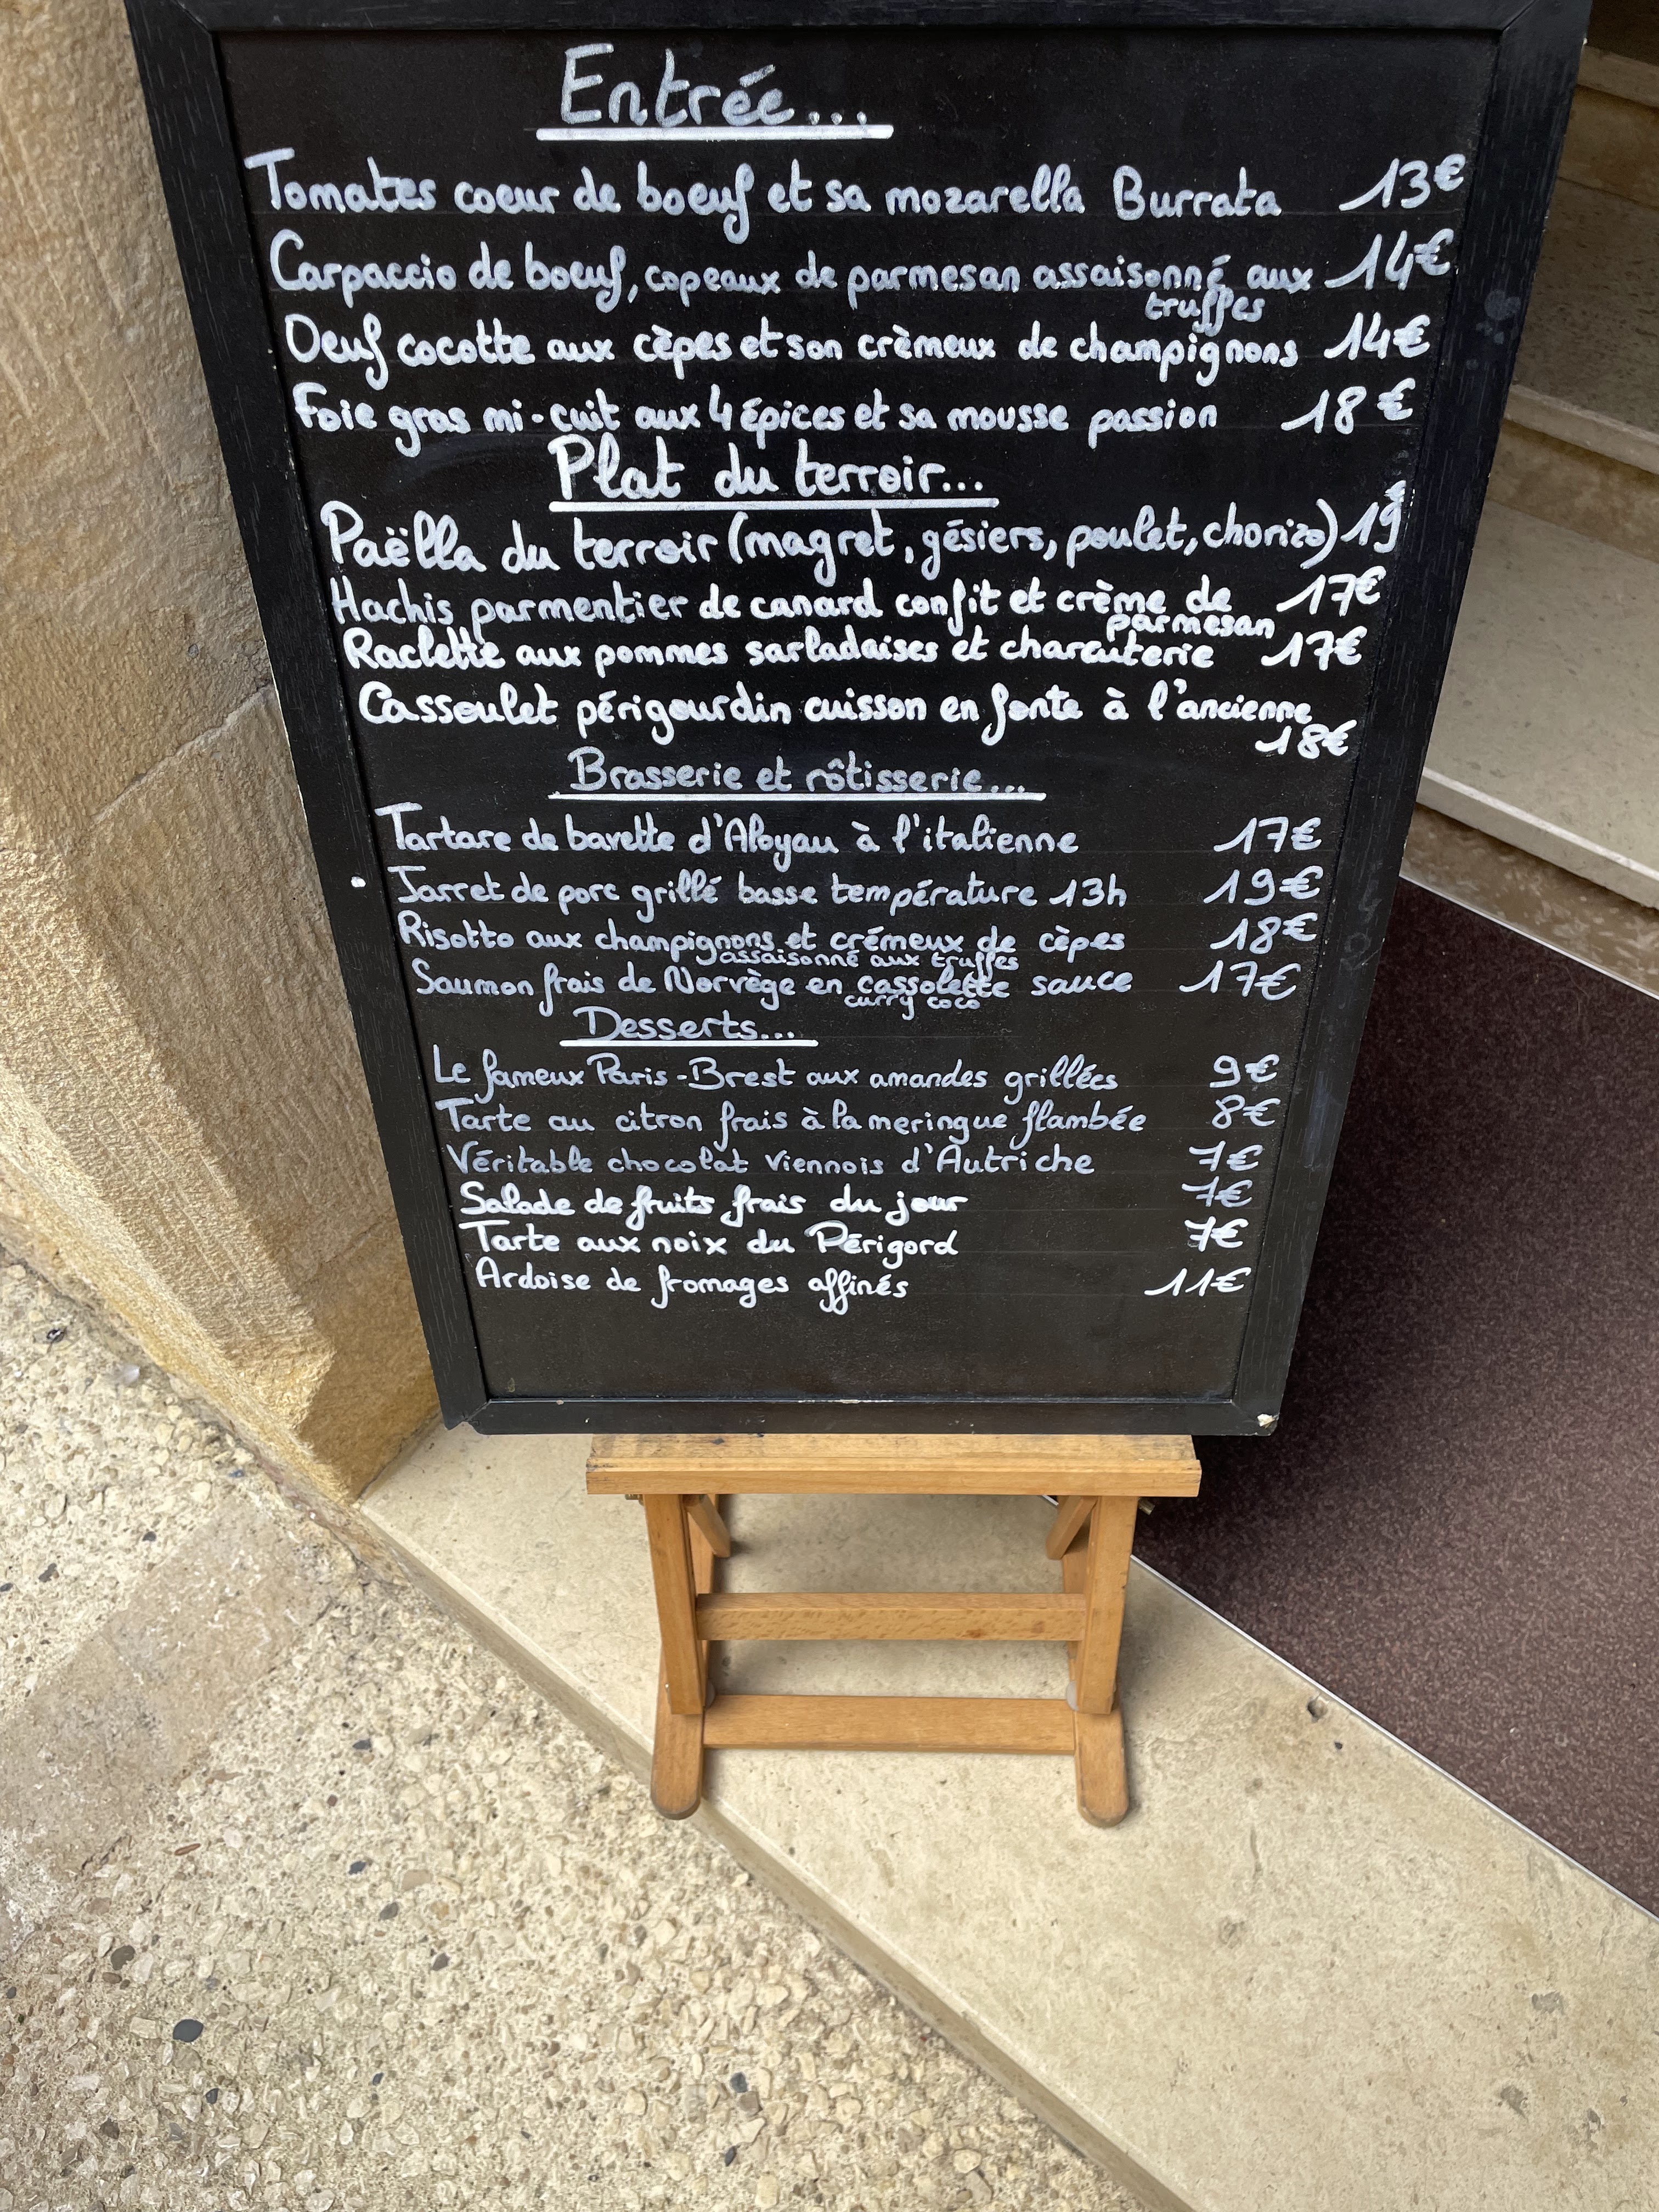 Entrée...
Tomates coeur de boeuf et sa mozarella Burrata 13€
Carpaccio de boeuf, copeaux de parmesan assaisonné aux 14€
truffes
Oeuf cocotte aux cèpes et son crèmeux de champignons 14€
Foie gras mi-cuit aux 4 épices et sa mousse passion 18€
Plat du terroir...
Paëlla du terroir (magret, gésiers, poulet, chorizo) 19€
Hachis parmentier de canard confit et crème de 17€
parmesan
Raclette aux pommes sarladaises et charcuterie 17€
Cassoulet périgourdin cuisson en fonte à l'ancienne
18€
Brasserie et rôtisserie...
Tartare de bavette d'Aloyau à l'italienne 17€
Jarret de porc grillé basse température 13h 19€
Risotto aux champignons et crémeux de cèpes 18€
assaisonné aux truffes
Saumon frais de Norvège en cassolette sauce 17€
curry coco
Desserts...
Le fameux Paris-Brest aux amandes grillées 9€
Tarte au citron frais à la meringue flambée 8€
Véritable chocolat viennois d'Autriche 7€
Salade de fruits frais du jour 7€
Tarte aux noix du Périgord 7€
Ardoise de fromages affinés 11€